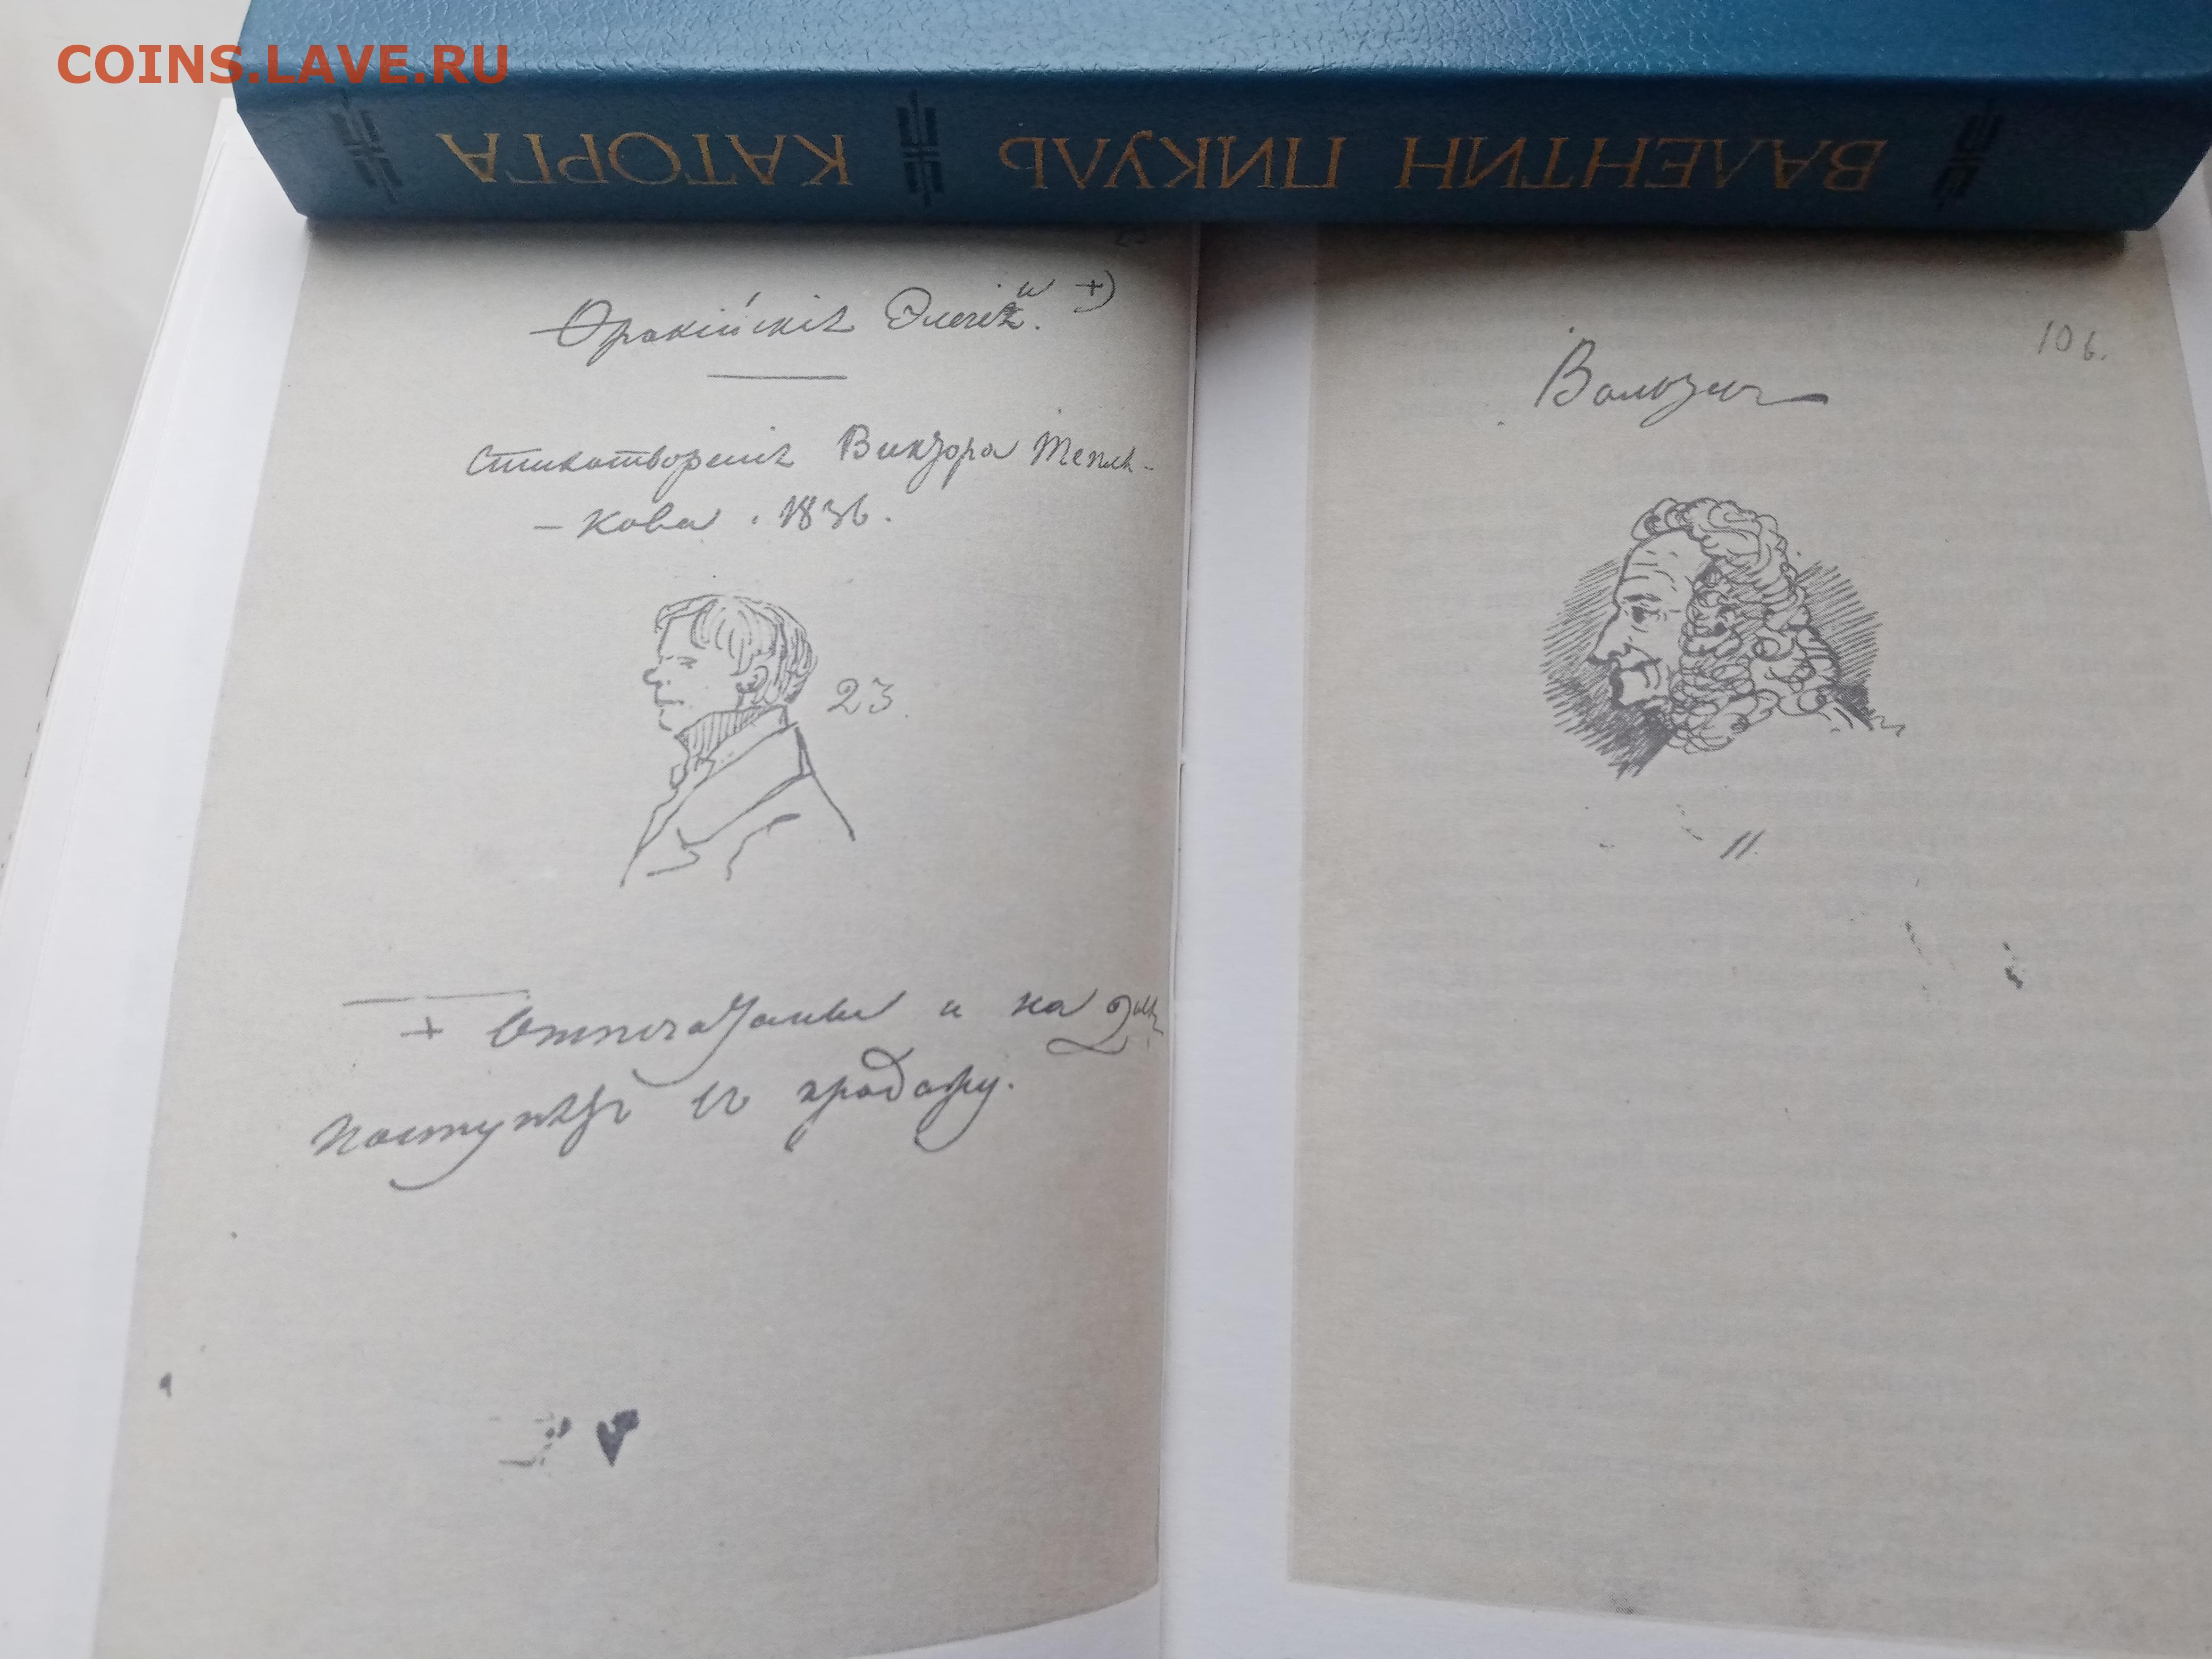 COINS.LAVE.RU
ВАЛЕНТИН ПИКУЛЬ КАТОРГА
Ѳракійскія Элегіи. +)
стихотворенія Виктора Тепля-
- кова . 1836.
23.
+ Отпечатаны и на дняхъ
поступятъ въ продажу.
106.
11